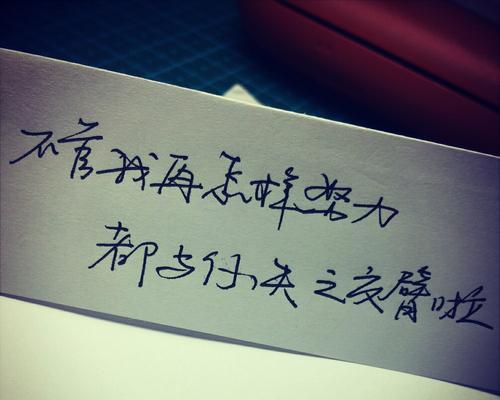 不管我再怎样努力
都与你失之交臂啦